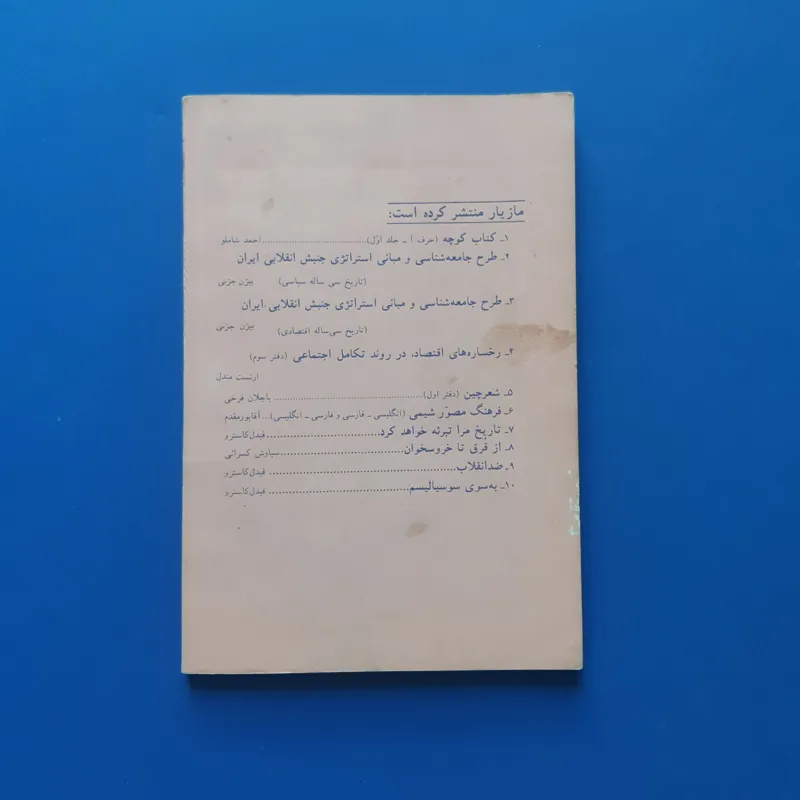 مازیار منتشر کرده است:
۱ـ کتاب کوچه (حرف آ ـ جلد اوّل)........................................احمد شاملو
۲ـ طرح جامعه‌شناسی و مبانی استراتژی جنبش انقلابی ایران
(تاریخ سی ساله سیاسی) بیژن جزنی
۳ـ طرح جامعه‌شناسی و مبانی استراتژی جنبش انقلابی ایران
(تاریخ سی‌ساله اقتصادی) بیژن جزنی
۴ـ رخساره‌های اقتصاد، در روند تکامل اجتماعی (دفتر سوم)
ارنست مندل
۵ـ شعرچین (دفتر اول)........................................باجلان فرخی
۶ـ فرهنگ مصوّر شیمی (انگلیسی ـ فارسی و فارسی ـ انگلیسی)... آقاپورمقدم
۷ـ تاریخ مرا تبرئه خواهد کرد........................................فیدل‌کاسترو
۸ـ از قُرق تا خروسخوان........................................سیاوش کسرائی
۹ـ ضدانقلاب........................................فیدل‌کاسترو
۱۰ـ به‌سوی سوسیالیسم........................................فیدل‌کاسترو